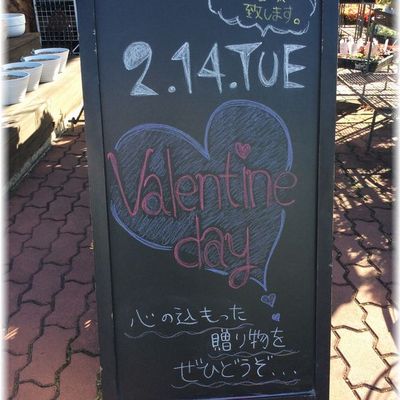 致します。
2.14.TUE
Valentine
day
心の込もった
贈り物を
ぜひどうぞ...